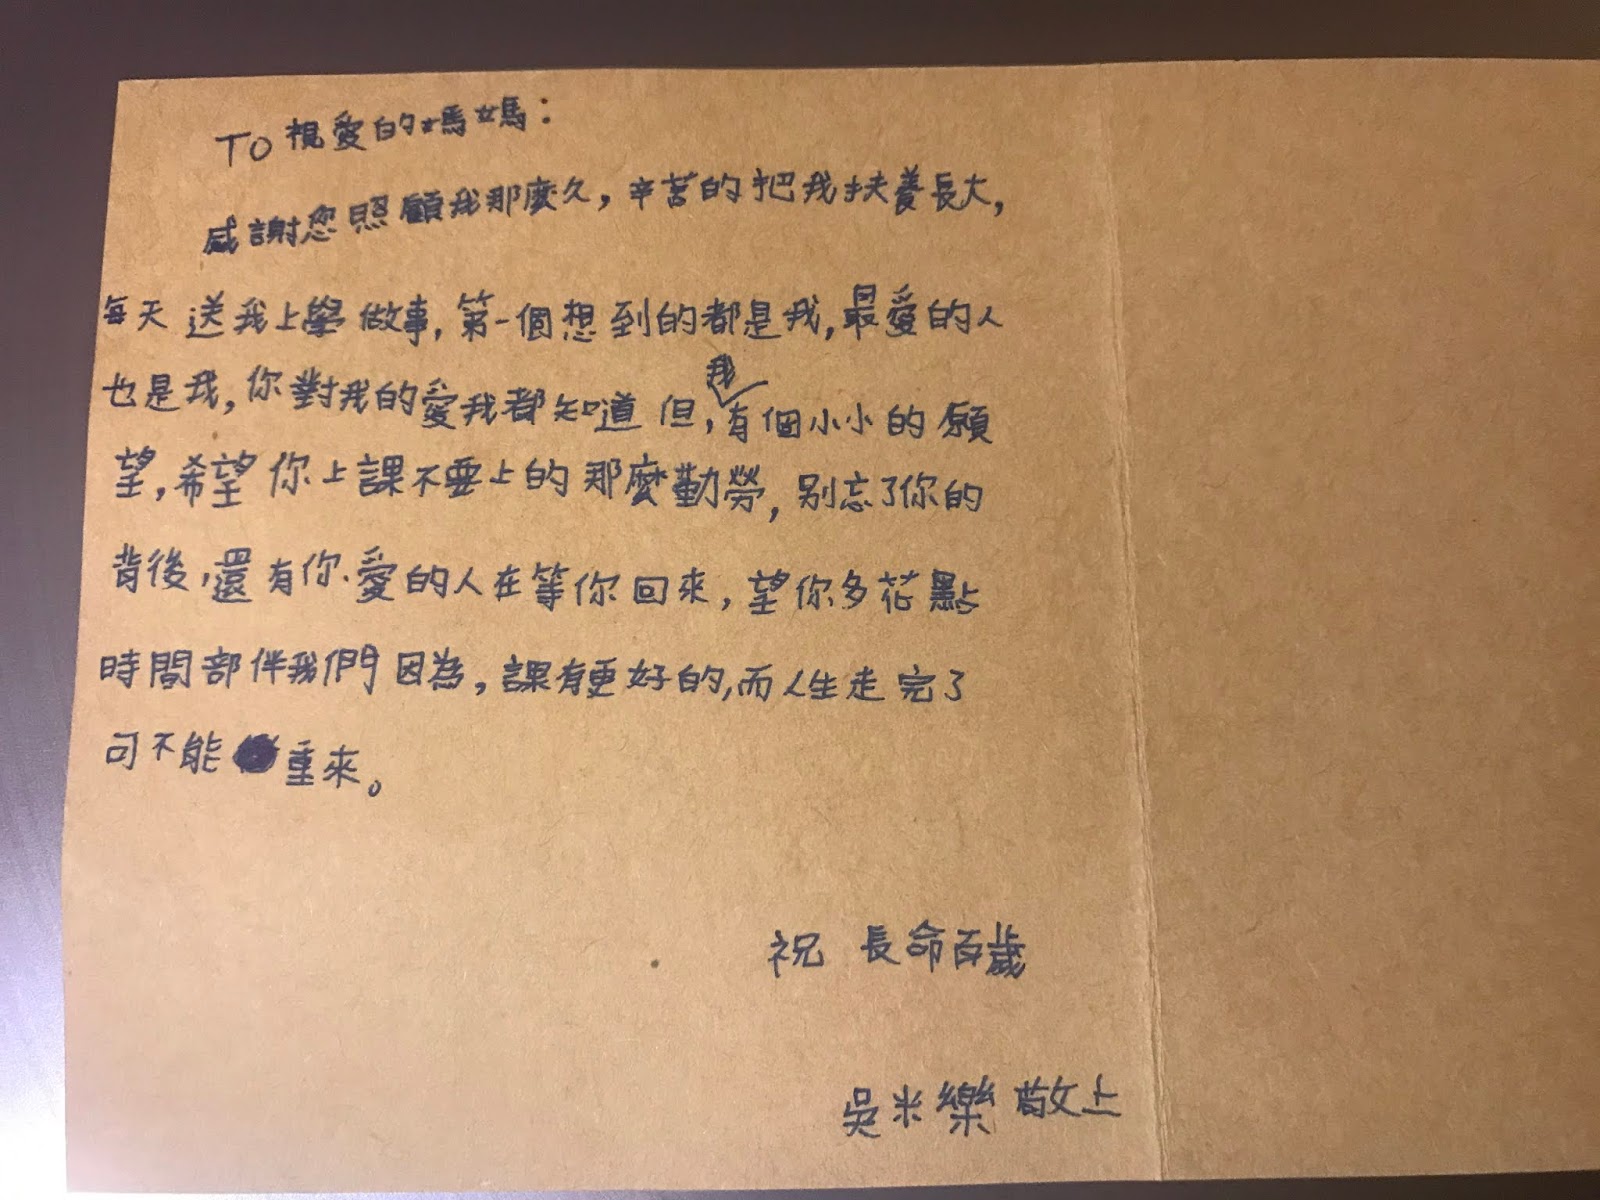 TO 視愛的媽媽：
感謝您照顧我那麼久，辛苦的把我扶養長大，
每天送我上學做事，第一個想到的都是我，最愛的人
也是我，你對我的愛我都知道但，我有個小小的願
望，希望你上課不要上的那麼勤勞，別忘了你的
背後，還有你愛的人在等你回來，望你多花點
時間部伴我們因為，課有更好的，而人生走完了
可不能重來。
祝 長命百歲
吳米樂 敬上